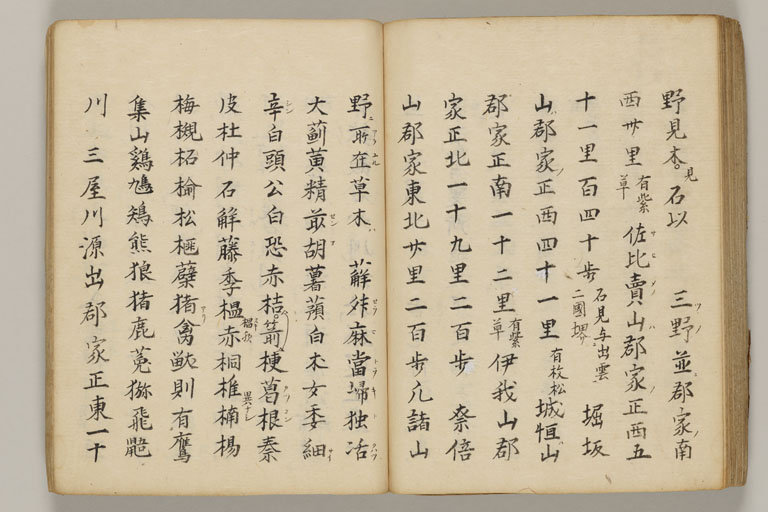 野見木見石以 三野並郡家南
西卅里有紫草 佐比賣山郡家正西五
十一里百四十步石見与出雲二國堺 堀坂
山郡家正西四十一里有杉松 城恒山
郡家正南一十二里有紫草 伊我山郡
家正北一十九里二百步 奈倍
山郡家東北廿里二百步凡諸山
野所在草木 蘚 麻當歸独活
大薊黄精 胡薯蕷白朮女委細
辛白頭公白 赤桔 梗葛根秦
皮杜仲石斛藤季榲赤桐椎楠楊
梅槻柘榆松榧蘗猪禽獣則有鷹
集山鷄鳩鴙熊狼猪鹿菟猕飛鼯
川 三屋川源出郡家正東一十